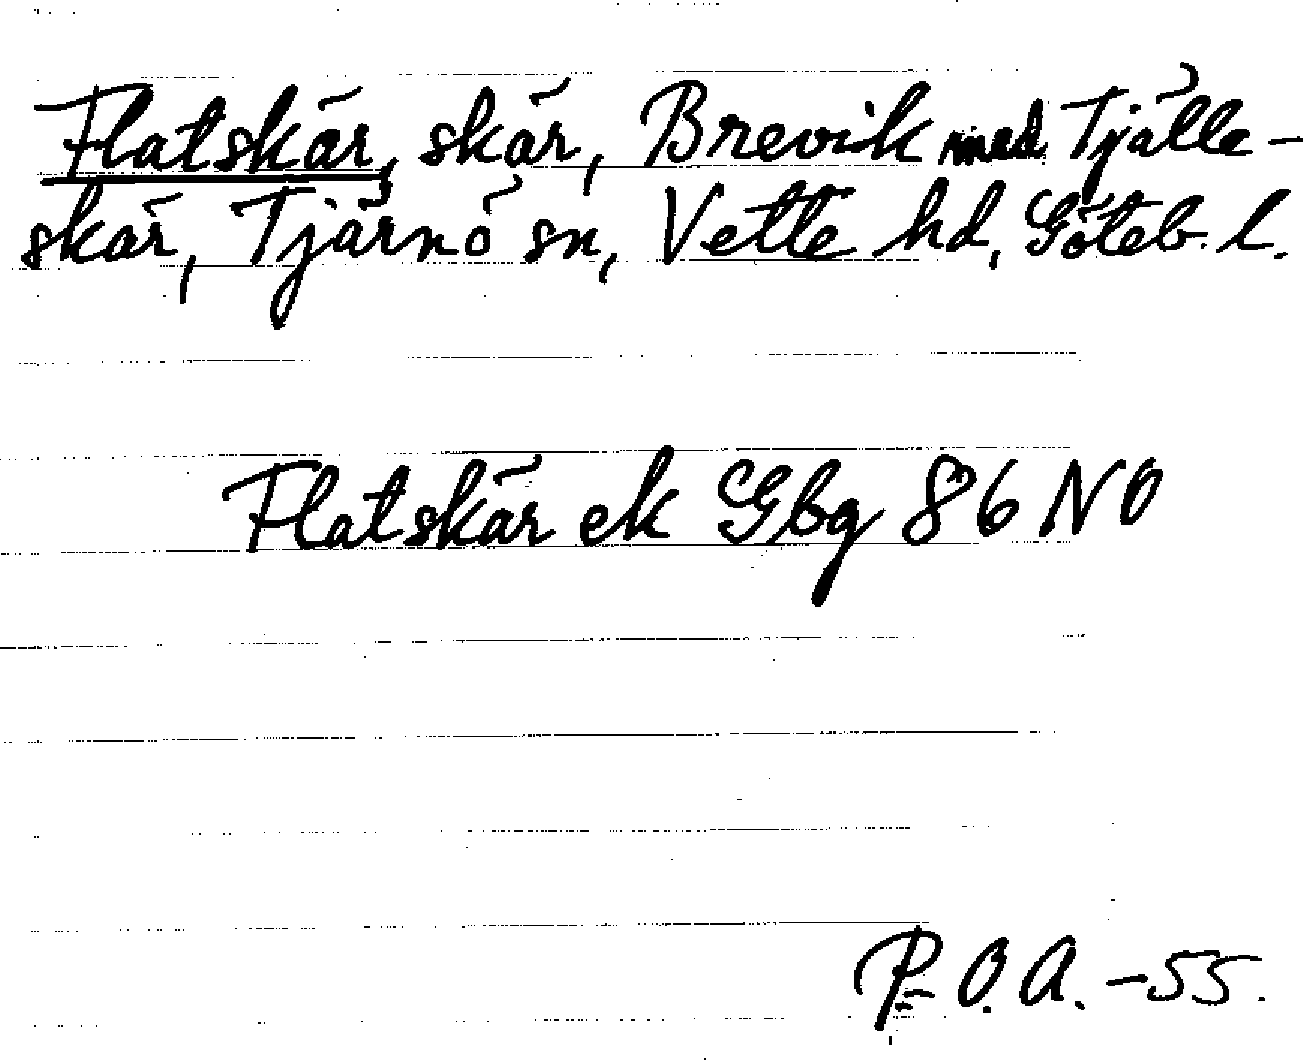 Flatskär, skär, Brevik med Tjälle-
skär, Tjärnö sn, Vette hd, Göteb. l.
Flatskär ek Gbg 86 NO
P. O. A. -55.